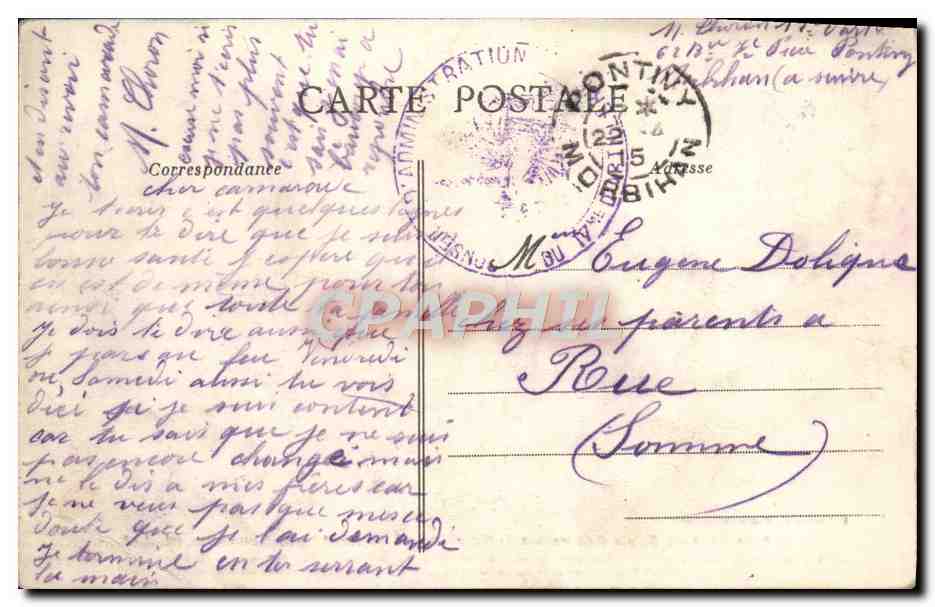 CARTE POSTALE
Correspondance
Adresse
cher camarade
Je tecris c est quelques lignes
pour te dire que je suis
bonne santé j espère que
en est de même pour toi
ainsi que toute ta famille
Je dois te dire aussi que
je pars au feu Vendredi
ou Samedi aussi tu vois
d'ici si je suis content
car tu sais que je ne suis
pas encore changé mais
ne le dis a mes frères car
je ne veux pas que mes
doute que je l'ai demandé
Je termine en te serrant
la main
en te disant
au revoir
ton camarade
M. Choron
excuse moi si
je ne t'ecris
pas plus
souvent
sais
reponse
M. Choron
62 Pontivy
(a suivre)
Mr Eugène Doligne
chez ses parents a
Rue
(Somme)
PONTIVY
22 5
MORBIHAN
D'ADMINISTRATION
CPAPHTI